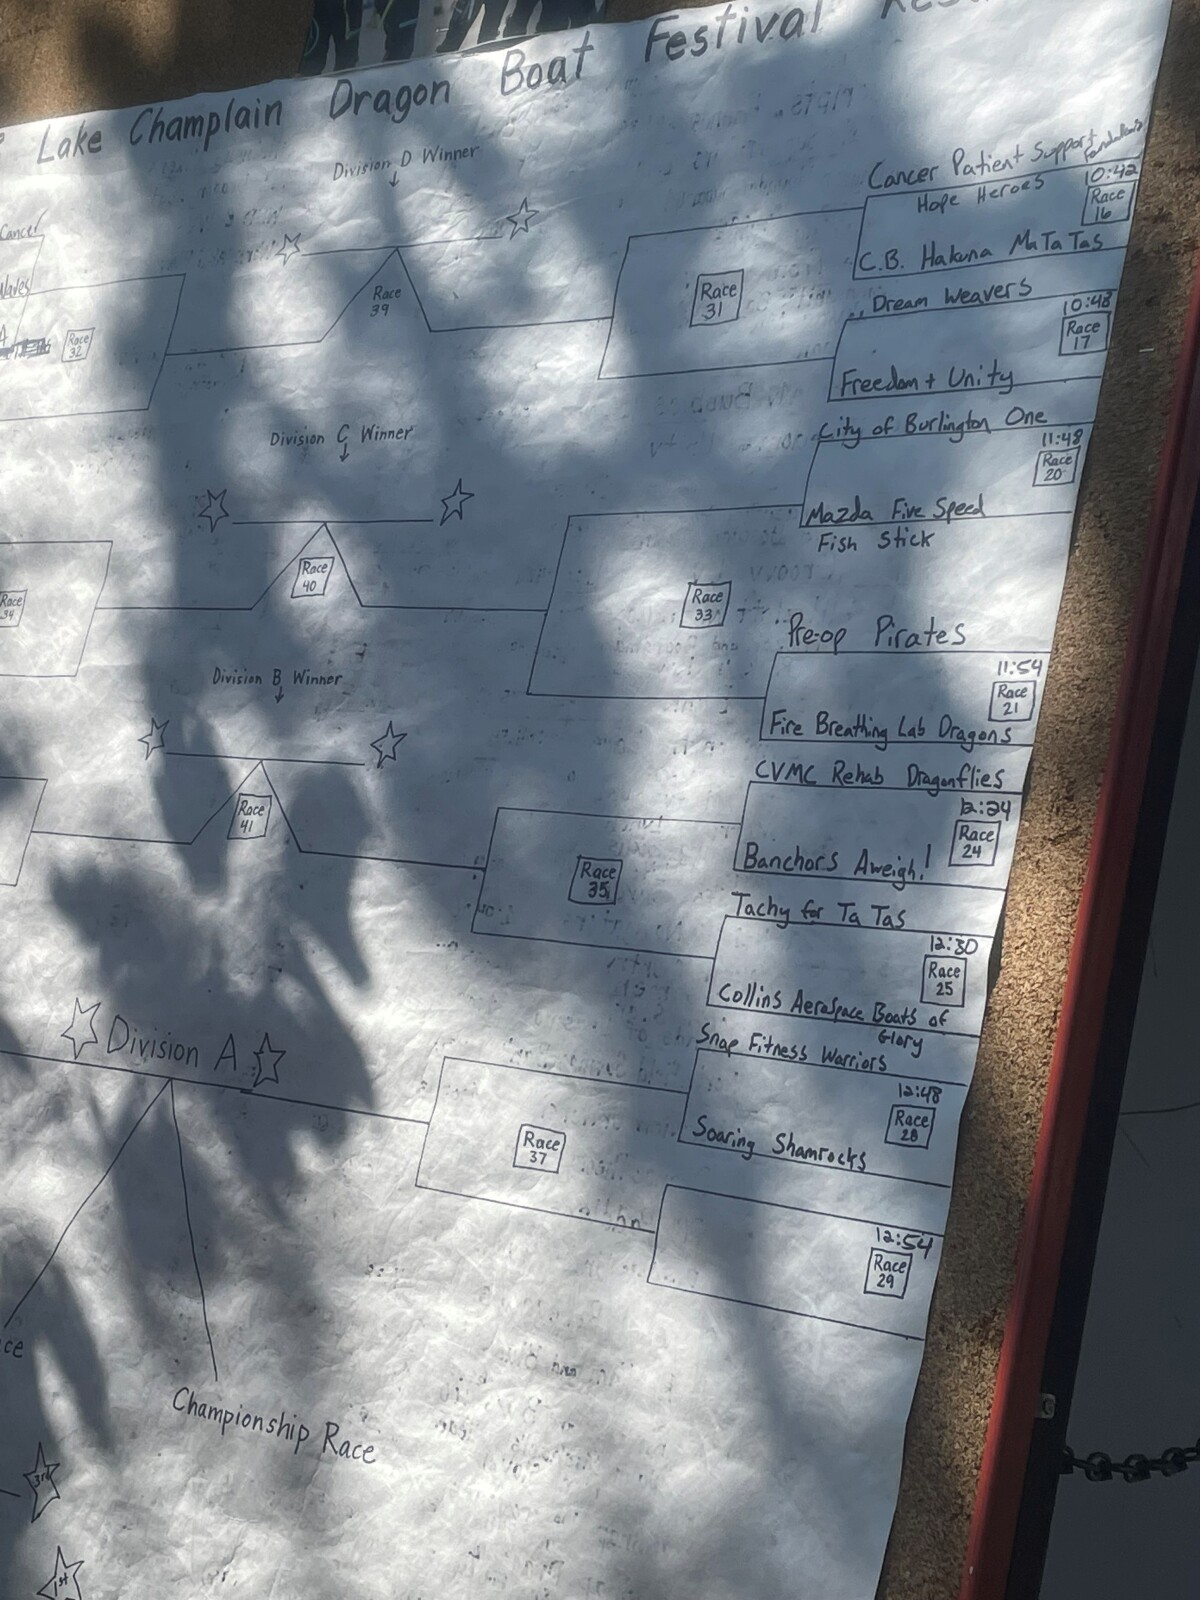 Lake Champlain Dragon Boat Festival
Division D Winner
Cancer Patient Support
Hope Heroes
10:42
Race
16
C.B. Hakuna MaTaTas
Cancer
Race
32
Race
39
Race
31
Dream Weavers
10:48
Race
17
Freedom + Unity
Division C Winner
City of Burlington One
11:48
Race
20
Mazda Five Speed
Fish Stick
Race
34
Race
40
Race
33
Pre-op Pirates
11:54
Race
21
Fire Breathing Lab Dragons
Division B Winner
CVMC Rehab Dragonflies
12:24
Race
24
Banchors Aweigh!
Race
41
Race
35
Tachy for Ta Tas
12:30
Race
25
Collins Aerospace Boats of
Glory
Division A
Snap Fitness Warriors
12:48
Race
28
Soaring Shamrocks
Race
37
12:54
Race
29
Championship Race
3rd
1st